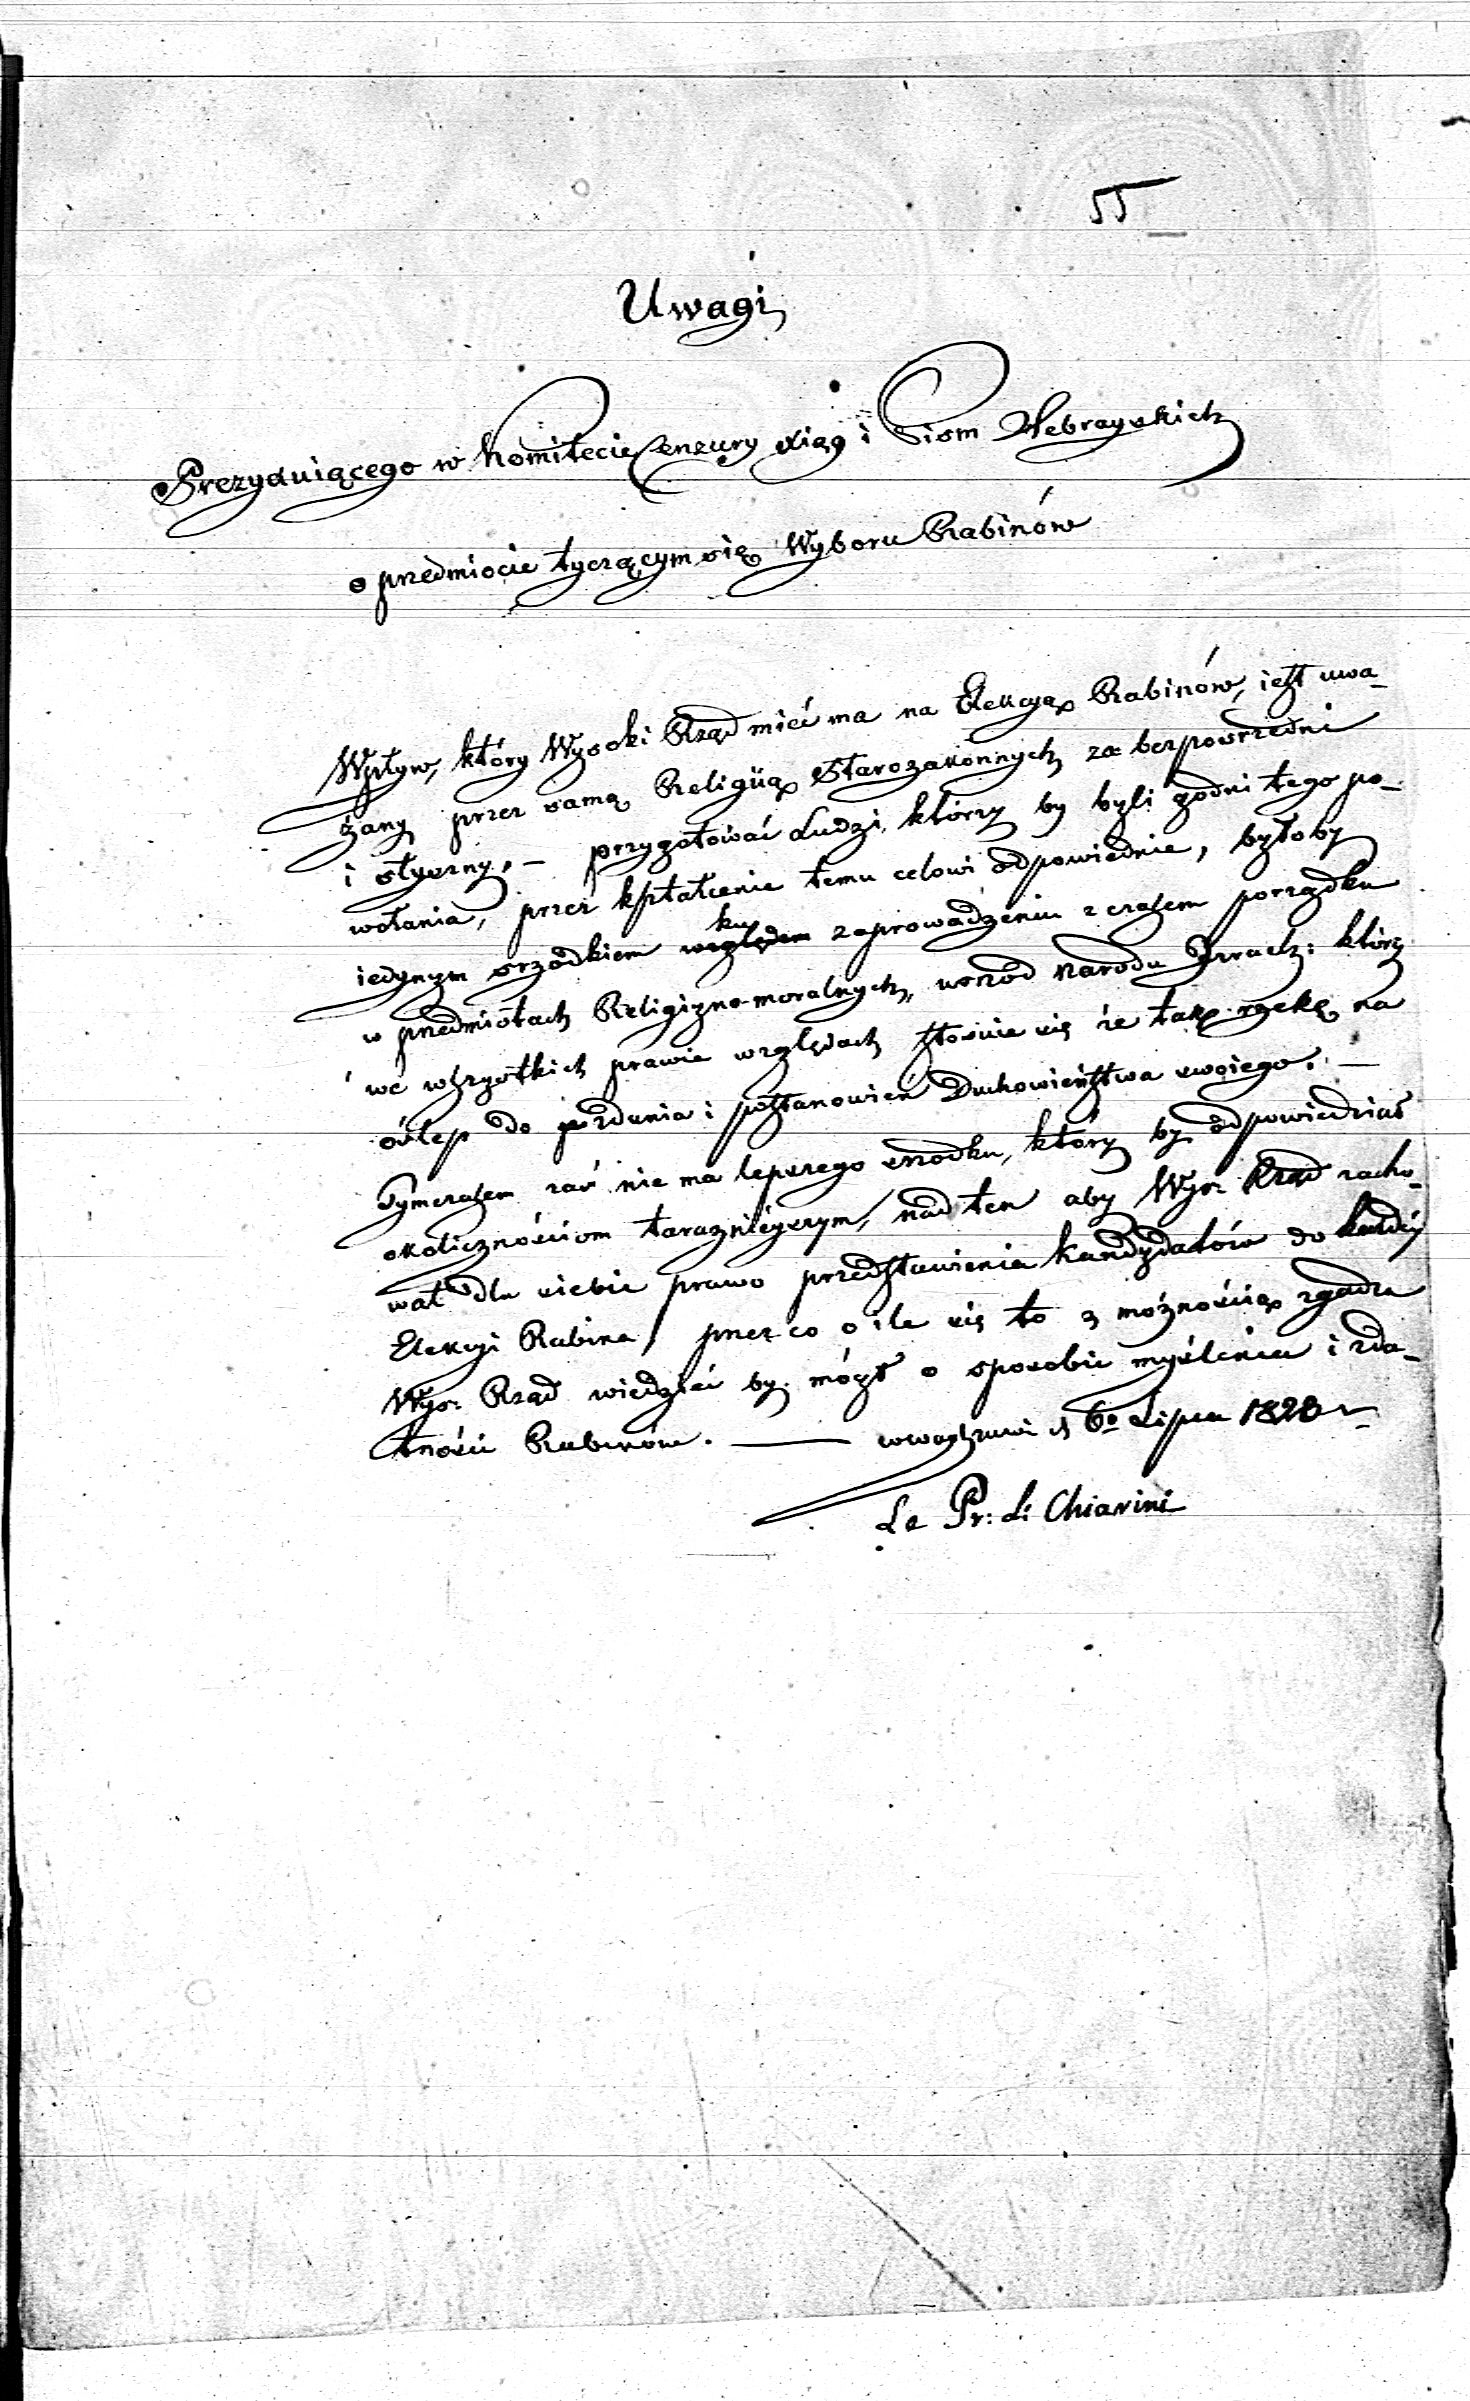 55
Uwagi
Prezyduiącego w Komitecie Cenzury xiąg i Pism Hebrayskich
o przedmiocie tyczącym się Wyboru Rabinów
Wpływ, który Wysoki Rząd mieć ma na Elekcyą Rabinów, iest uwa-
żany przez samą Religiią Starozakonnych za bezpośrzedni
i słyszny. — przygotować Ludzi, którzy by byli godni tego po-
wołania, przez kształcenie temu celowi odpowiednie, byłoby
iedynym srzodkiem ku zaprowadzeniu z czasem porządku
w przedmiotach Religiyno-moralnych, wśrzód Narodu Izrael: który
we wszystkich prawie względach stosuie się że tak rzekę na
óślep do zdania i postanowień Duchowieństwa swoiego. —
Tymczasem zaś nie ma lepszego srzodku, który by odpowiedział
okolicznościom teraznieyszym, nad ten aby Wys: Rząd zacho-
wał dla siebie prawo przedstawienia Kandydatów do każdéy
Elekcyi Rabina, przez co o ile się to z możnością zgadza
Wys: Rząd wiedzieć by mógł o sposobie myślenia i zda-
tności Rabinów. — w Warszawie d 6o Lipca 1828 r
Le Pr: L: Chiarini